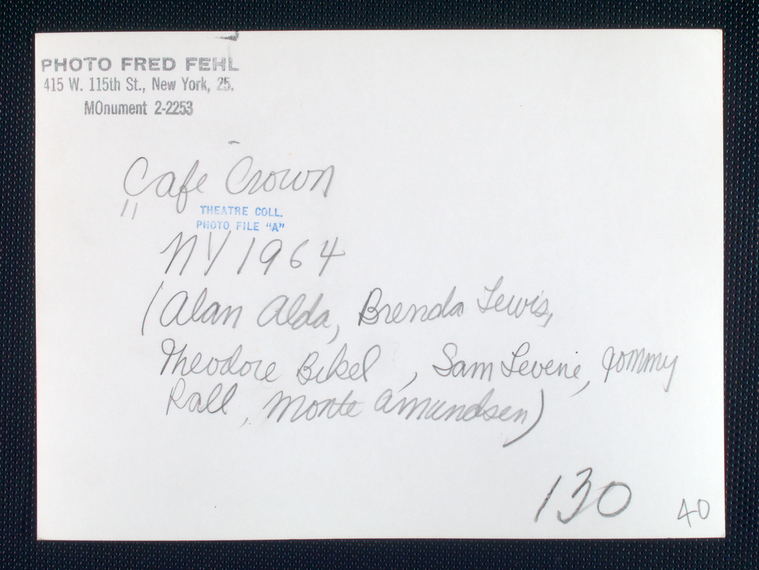 PHOTO FRED FEHL
415 W. 115th St., New York, 25.
MOnument 2-2253
"Cafe Crown
THEATRE COLL.
PHOTO FILE "A"
NY 1964
(Alan Alda, Brenda Lewis,
Theodore Bikel, Sam Levene, Tommy
Rall, Monte Amundsen)
130
40